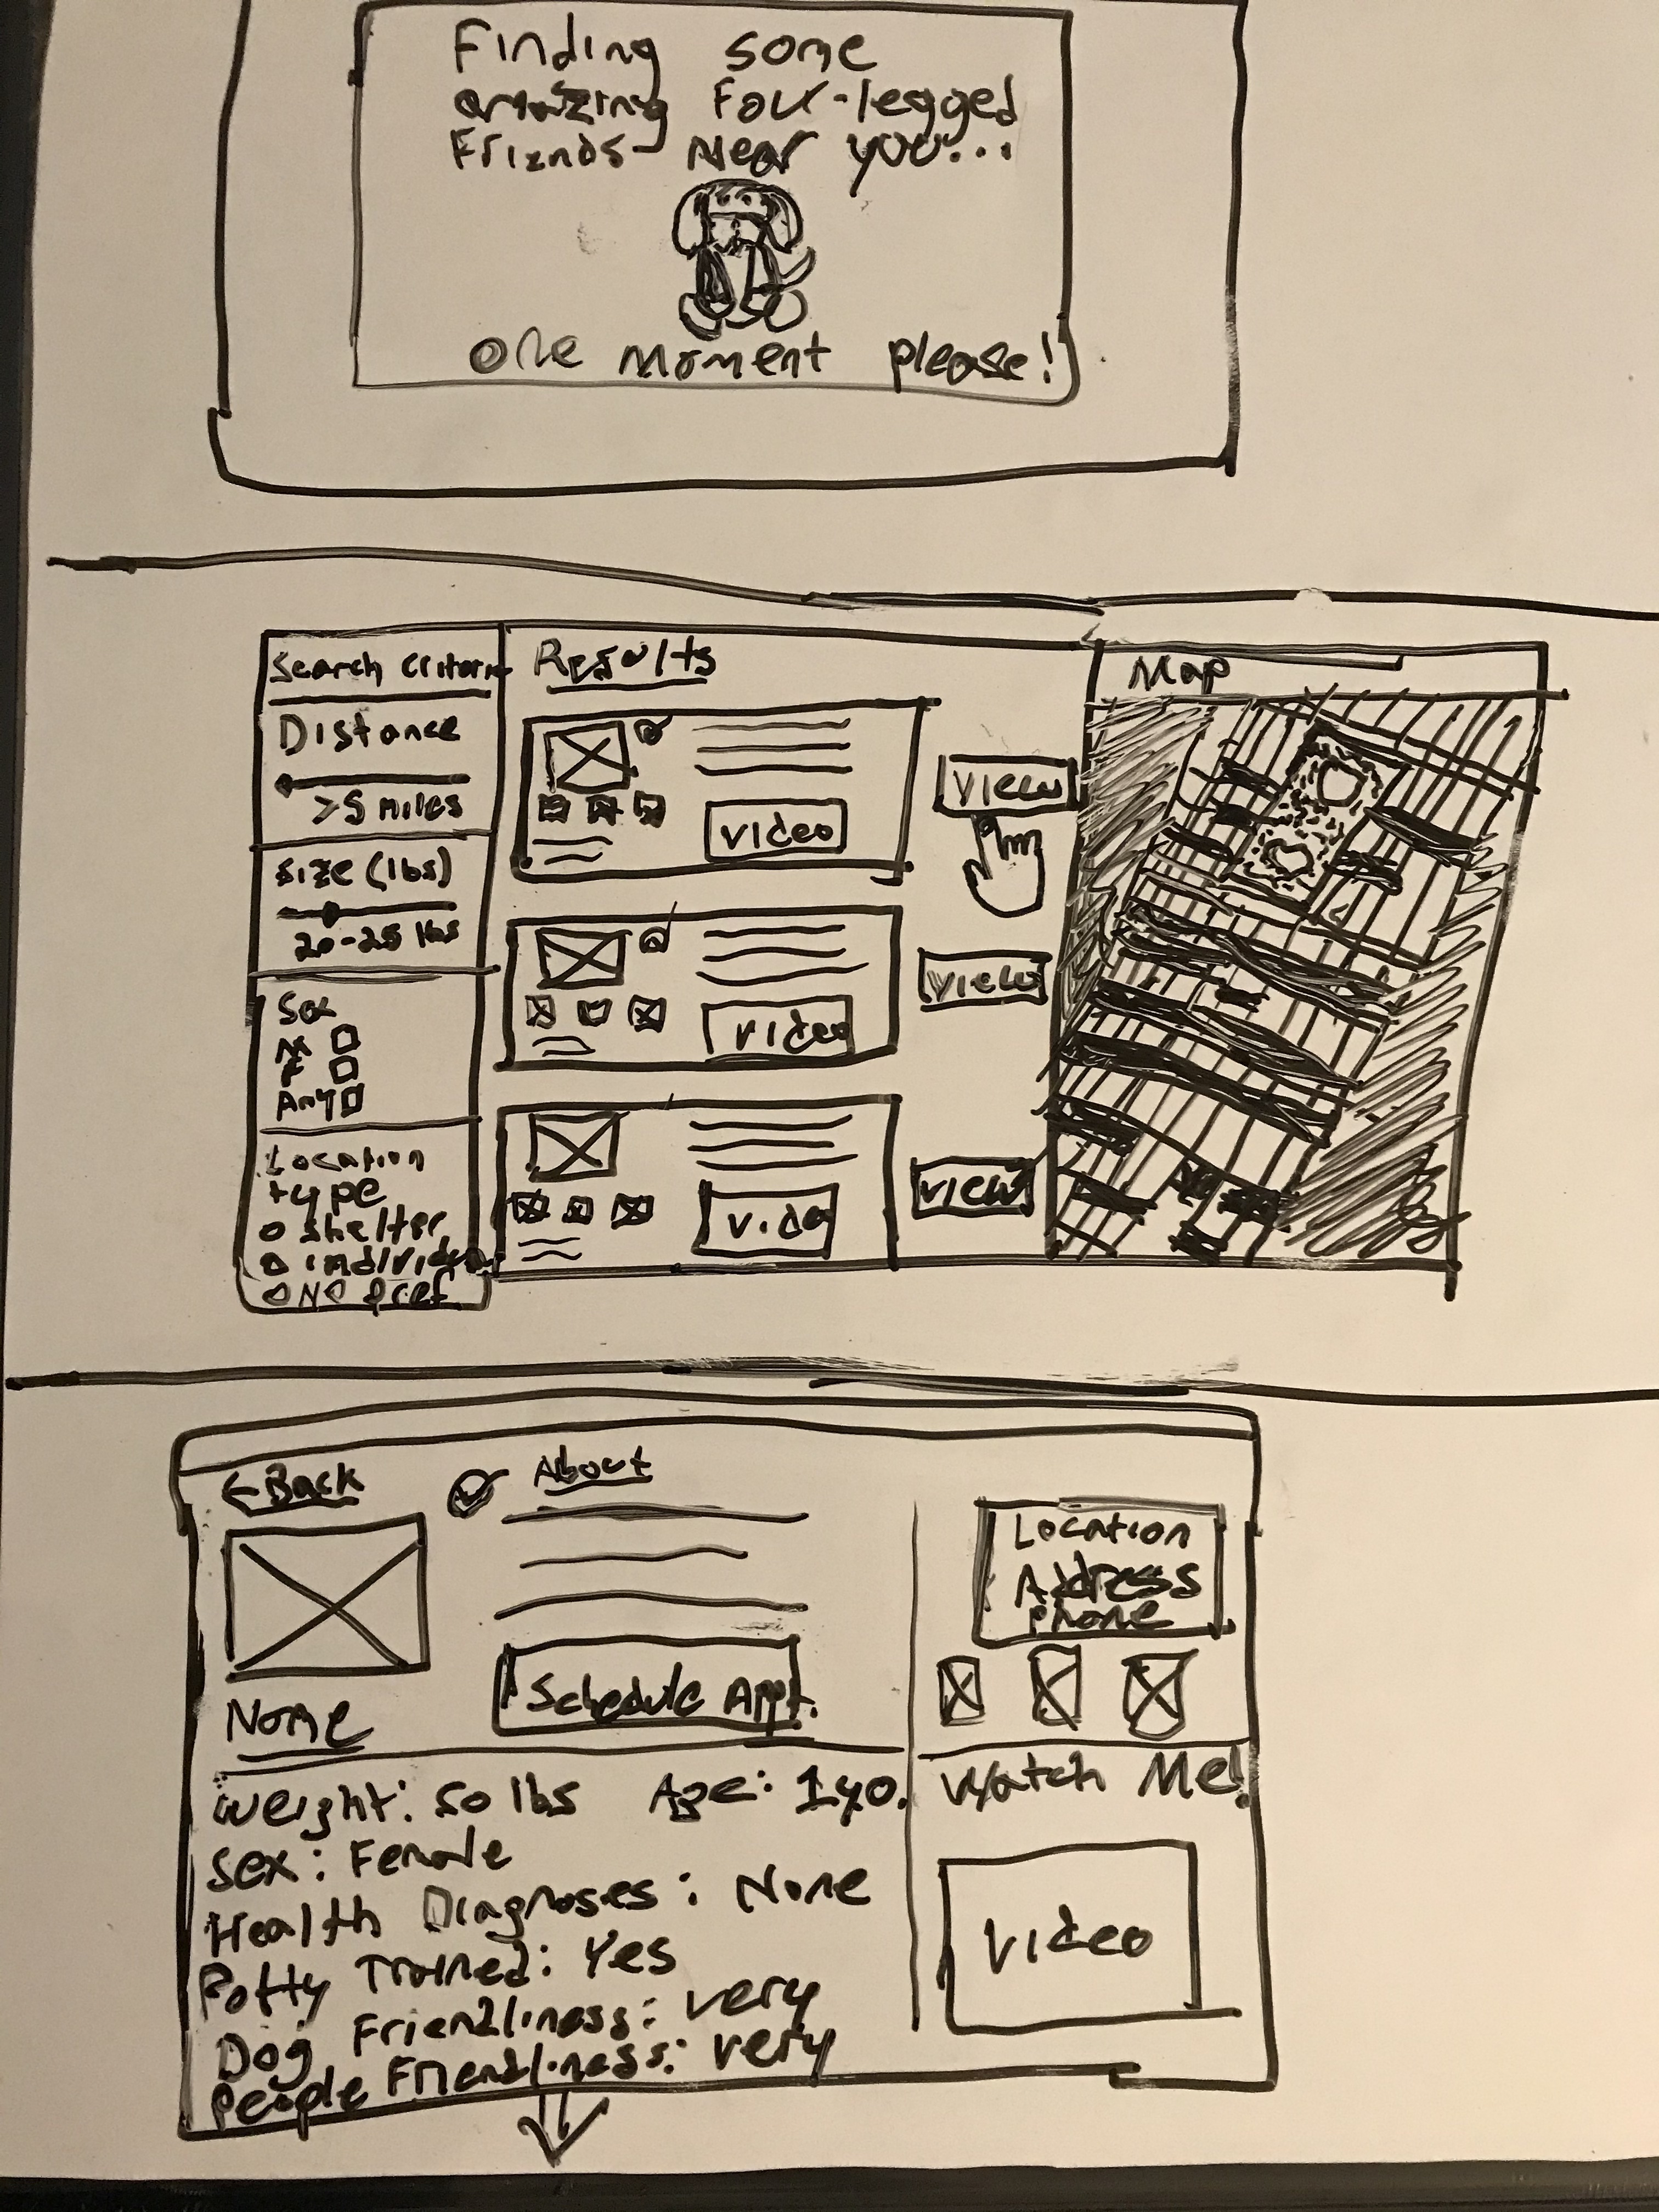 Finding some
amazing Four-legged
Friends Near you...
one moment please!
Search Criteria
Distance
>5 miles
Size (lbs)
20-25 lbs
Sex
M
F
Any
Location
type
shelter
individual
No pref
Results
video
view
video
view
video
view
Map
← Back
About
Schedule Appt.
Name
Location
Address
Phone
Weight: 50 lbs Age: 1 y.o.
Sex: Female
Health Diagnoses: None
Potty Trained: Yes
Dog Friendliness: very
People Friendliness: very
Watch Me!
Video